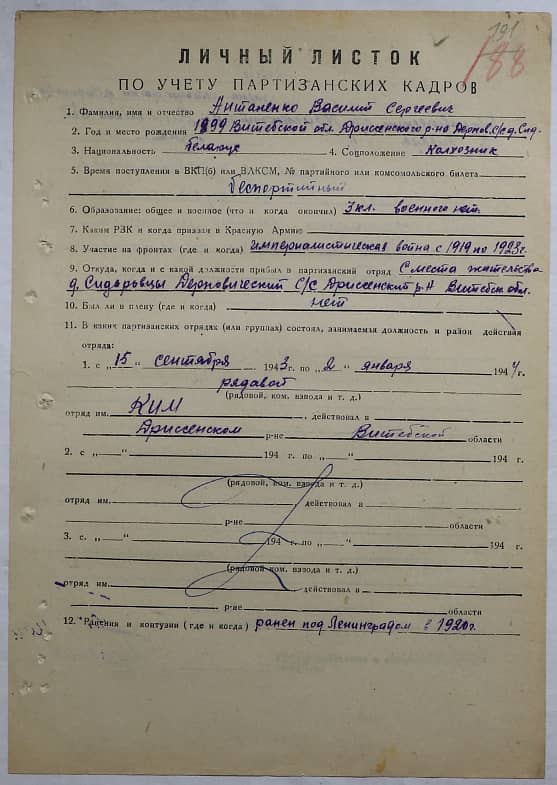 191
188
ЛИЧНЫЙ ЛИСТОК
ПО УЧЕТУ ПАРТИЗАНСКИХ КАДРОВ
1. Фамилия, имя и отчество Антаненко Василий Сергеевич
2. Год и место рождения 1899 Витебской обл. Дриссенского р-на Дернов. с/с д. Сид.
3. Национальность беларус 4. Соцположение Колхозник
5. Время поступления в ВКП(б) или ВЛКСМ, № партийного или комсомольского билета
беспортийный
6. Образование: общее и военное (что и когда окончил) 3 кл. военного нет.
7. Каким РВК и когда призван в Красную Армию
8. Участие на фронтах (где и когда) империалистическая война с 1919 по 1923 г.
9. Откуда, когда и с какой должности прибыл в партизанский отряд С места жительства
д. Сидаровцы Дерновический С/С Дриссенский р-н Витебск обл.
10. Был ли в плену (где и когда) нет
11. В каких партизанских отрядах (или группах) состоял, занимаемая должность и район действия
отряда:
1. с „15“ сентября 1943 г. по „2“ января 1944 г.
рядавой
(рядовой, ком. взвода и т. д.)
отряд им. КИМ , действовал в
Дриссенском р-не Витебской области
2. с „ “ 194 г. по „ “ 194 г.
(рядовой, ком. взвода и т. д.)
отряд им. действовал в
р-не области
3. с. „ “ 194 г. по „ “ 194 г.
(рядовой ком. взвода и т. д.)
отряд им. действовал в
р-не области
12. Ранения и контузии (где и когда) ранен под Ленинградом в 1920 г.